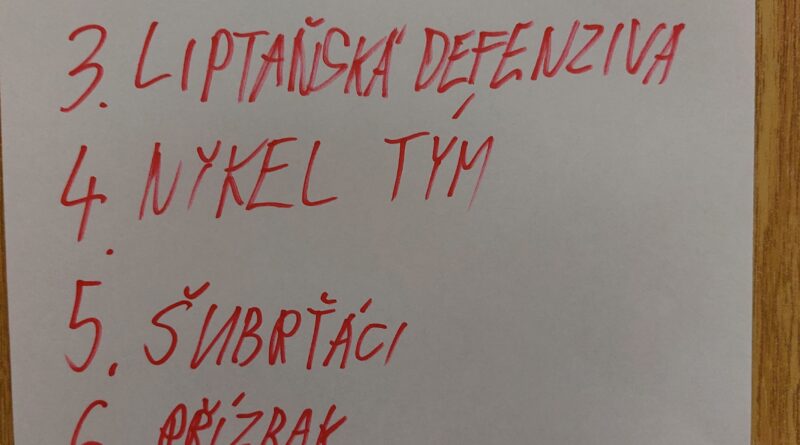 3. LIPTAŇSKÁ DEFENZIVA
4. NYKEL TÝM
5. ŠUBRŤÁCI
6. PŘÍZRAK